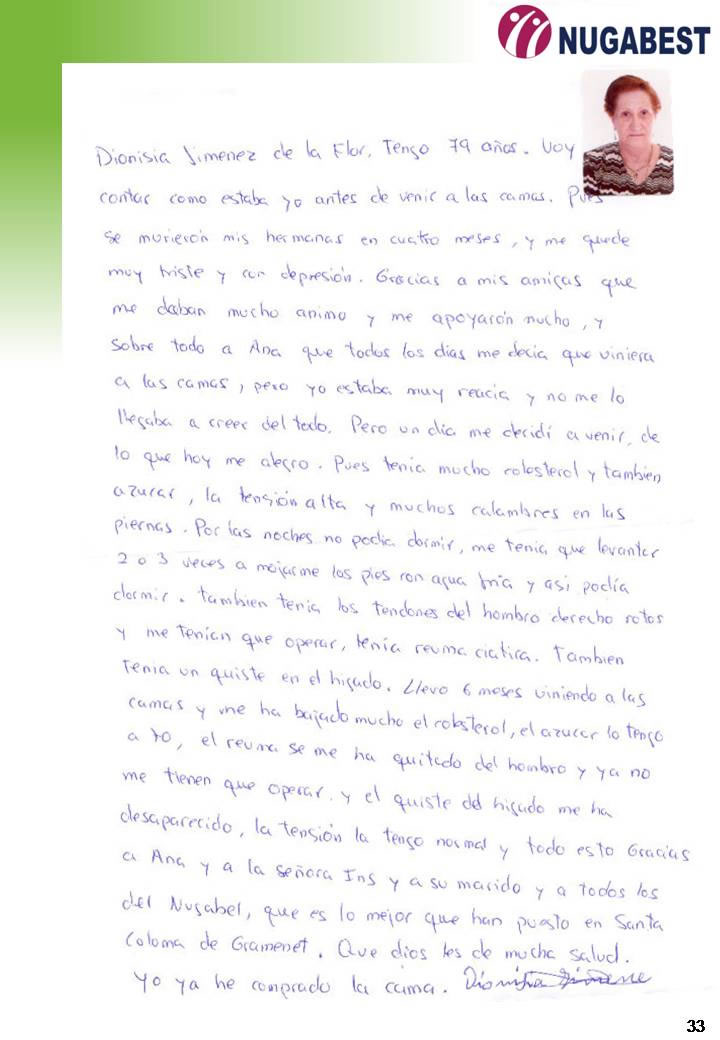 NUGABEST
Dionisia Jimenez de la Flor. Tengo 79 años. Voy
contar como estaba yo antes de venir a las camas. Pues
se murierón mis hermanas en cuatro meses, y me quede
muy triste y con depresión. Gracias a mis amigas que
me daban mucho animo y me apoyarón mucho, y
sobre todo a Ana que todos los dias me decia que viniera
a las camas, pero yo estaba muy reacia y no me lo
llegaba a creer del todo. Pero un dia me decidí a venir, de
lo que hoy me alegro. Pues tenia mucho colosterol y tambien
azucar, la tensión alta y muchos calambres en las
piernas. Por las noches no podia dormir, me tenia que levantar
2 o 3 veces a mojarme los pies con agua fria y asi podía
dormir. tambien tenia los tendones del hombro derecho rotos
y me tenian que operar, tenía reuma ciatica. Tambien
tenia un quiste en el higado. Llevo 6 meses viniendo a las
camas y me ha bajado mucho el colosterol, el azucar lo tengo
a 90, el reuma se me ha quitado del hombro y ya no
me tienen que operar. y el quiste del higado me ha
desaparecido, la tensión la tengo normal y todo esto Gracias
a Ana y a la señora Ins y a su marido y a todos los
del Nugabel, que es lo mejor que han puesto en Santa
Coloma de Gramenet. Que dios les de mucha salud.
Yo ya he comprado la cama. Dionisia Jimene
33